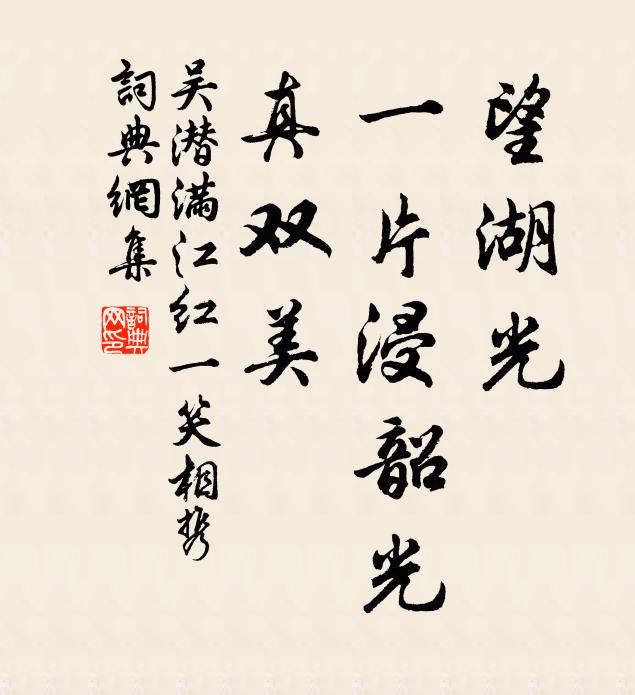 望湖光
一片浸韶光
真双美
吴潜满江红一笑相携
词典網集
詞典网印